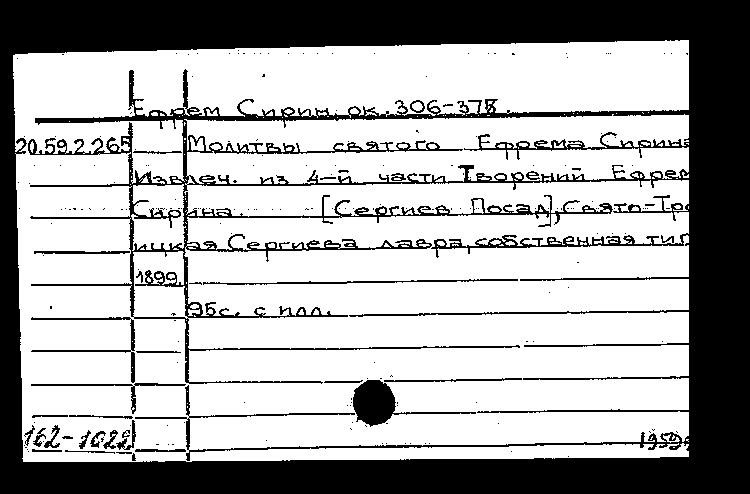 Ефрем Сирин, ок. 306-378.
20.59.2.265 Молитвы святого Ефрема Сирина
Извлеч. из 4-й части Творений Ефрем
Сирина. [Сергиев Посад], Свято-Тро
ицкая Сергиева лавра, собственная тип
1899.
95с. с илл.
162-1022 1959